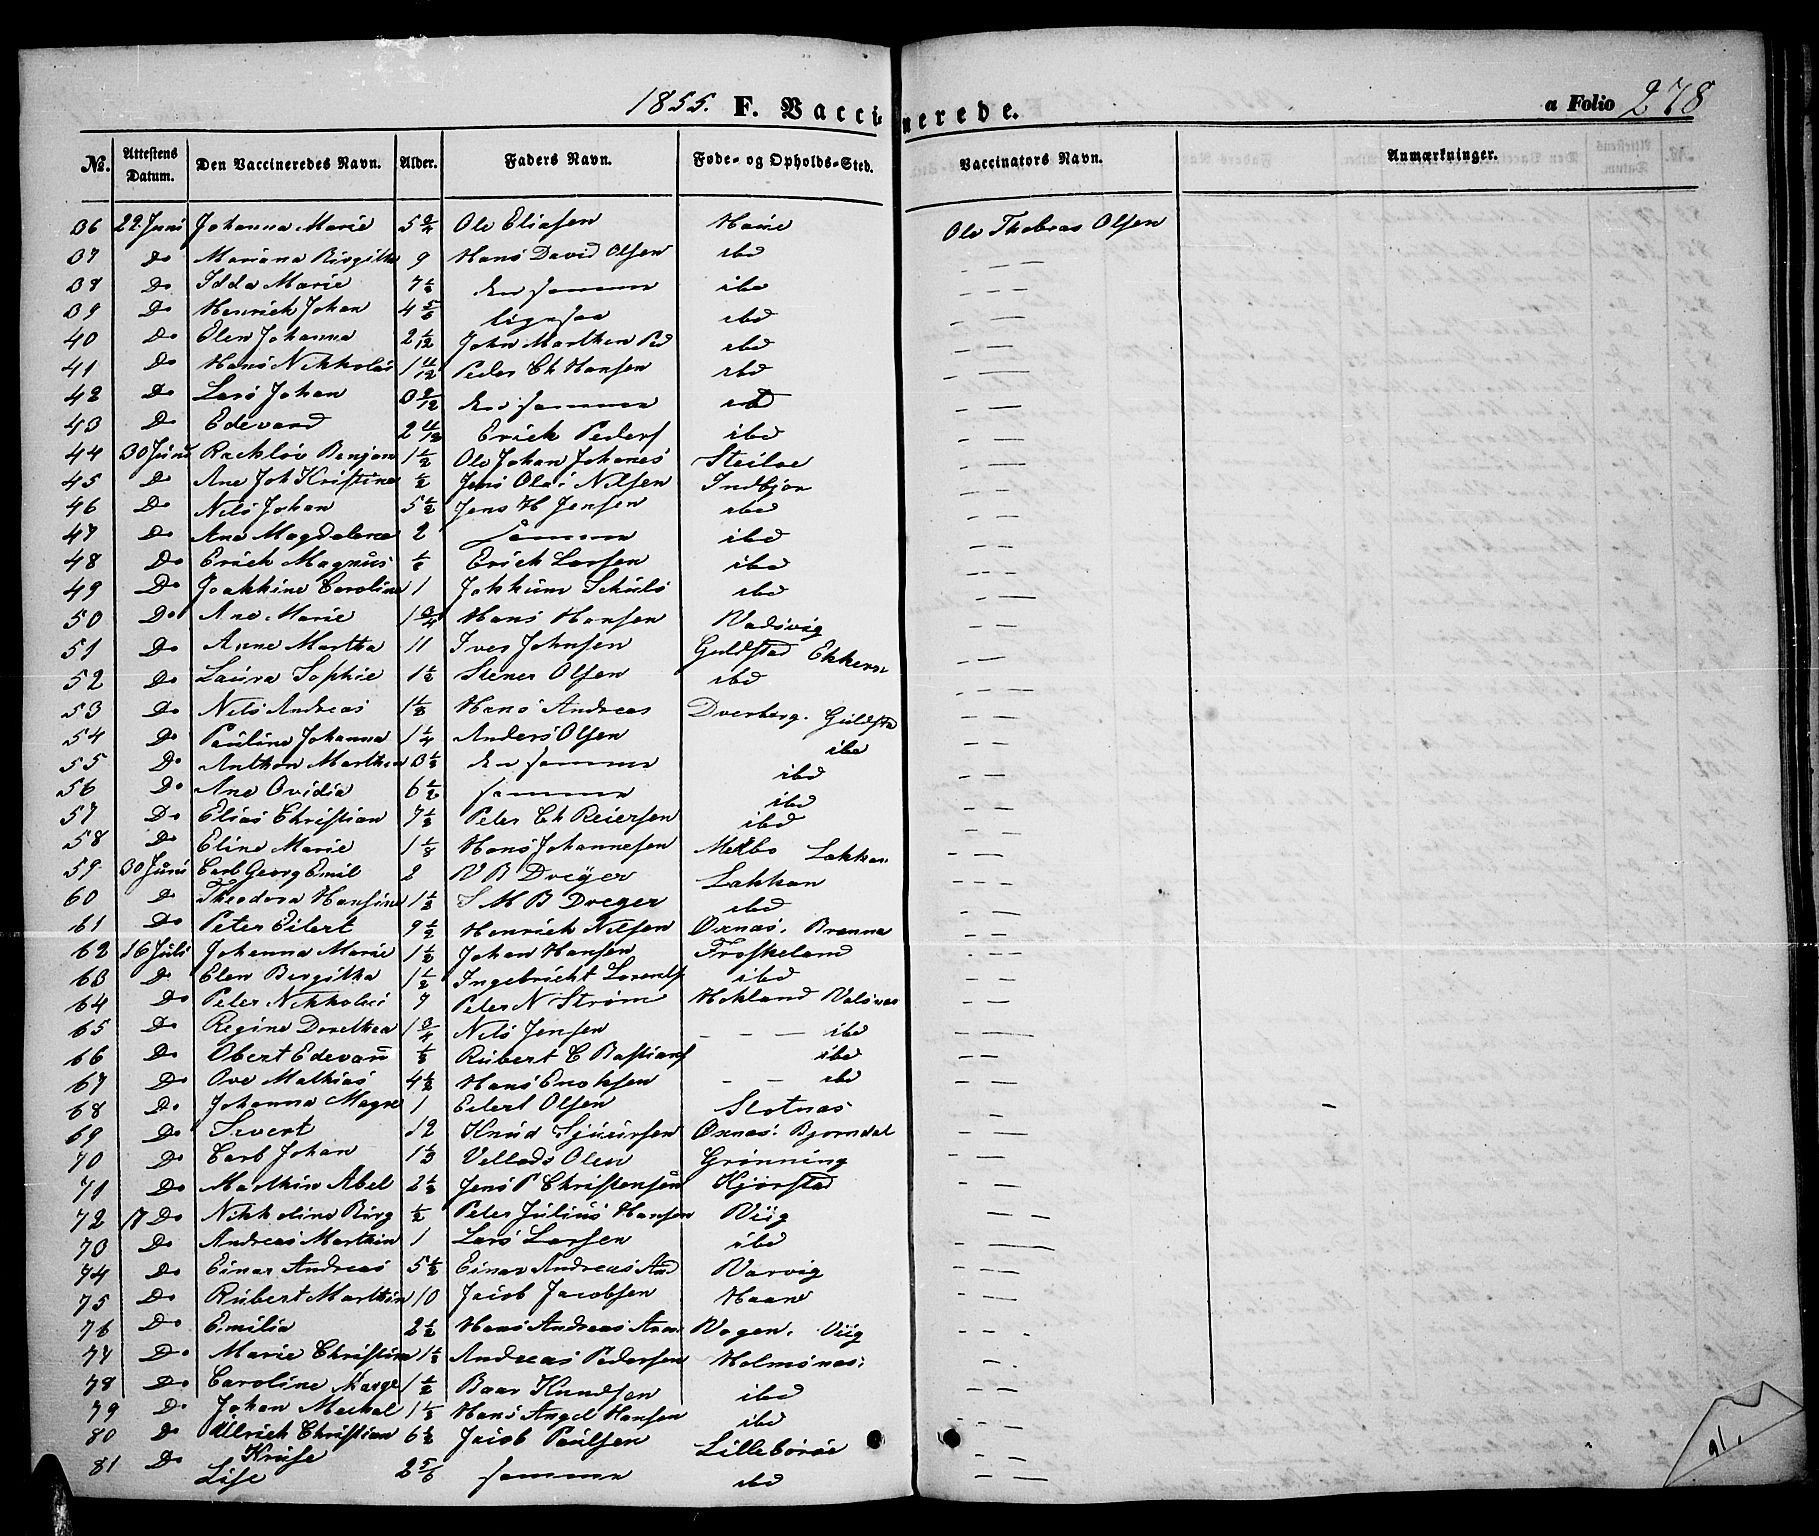 1855. F. Vaccinerede. a Folio 278
No. Attestens Datum. Den Vaccineredes Navn. Alder. Faders Navn. Føde- og Opholds-Sted. Vaccinators Navn. Anmærkninger.
36 22 Juni Johanna Marie 5 3/4 Ole Eliasen Haine Ole Thobias Olsen
37 Do Mariana Birgitha 9 Hans David Olsen ibd — —
38 Do Idda Marie 7 1/2 den samme ibd — —
39 Do Henrich Johan 4 5/6 ligesaa ibd — —
40 Do Elen Johanna 2 1/12 John Marthen Ped ibd — —
41 Do Hans Nikkolai 1 4/12 Peder Ch Hansen ibd — —
42 Do Lars Johan 0 9/12 den samme ibd — —
43 Do Edevard 2 4/12 Erich Peders ibd — —
44 30 Juni Rachløv Benjam 1 1/2 Ole Johan Johanes Steiloe — —
45 Do Ane Joh Kristine 1/2 Jens Olai Nilsen Indbjor — —
46 Do Nils Johan 5 1/2 Jens H Jensen ibd — —
47 Do Ane Magdalena 2 Samme ibd — —
48 Do Erich Magnus 1/6 Erich Larsen ibd — —
49 Do Joakkine Caroline 1 Jokkum Schuls ibd — —
50 Do Ane Marie 1 3/4 Hans Hansen Vadsvig — —
51 Do Anne Martha 11 Iver Johnsen Guldstad Ekkern — —
52 Do Laura Sophie 1 1/2 Stener Olsen ibd — —
53 Do Nils Andreas 1 1/3 Hans Andreas Dverberg. Guldsta — —
54 Do Pauline Johanna 1 1/4 Anders Olsen ibd — —
55 Do Anthon Marthin 0 1/3 den samme ibd — —
56 Do Ane Ovidia 6 1/2 samme ibd — —
57 Do Elias Christian 7 1/3 Peter Ch Reiersen ibd — —
58 Do Eline Marie 1 1/8 Hans Johannesen Melbo Lakkan — —
59 30 Juni Carl Georg Emil 2 V B Dreyer Lakkan — —
60 Do Theodora Hansine 1 1/3 S M B Dreyer ibd — —
61 Do Peter Eilert 9 1/2 Henrich Nilsen Oxnas. Brenna — —
62 16 Juli Johanna Marie 1 1/2 Johan Hansen Froskeland — —
63 Do Elen Birgitha 1 1/2 Ingebricht Lorents ibd — —
64 Do Peter Nikkolai 7 Peter N Strøm Hokland Valsnes — —
65 Do Regine Dorethea 1 3/4 Nils Jensen — — — ibd — —
66 Do Obert Edevard 1/3 Rubert C Bastians ibd — —
67 Do Ove Mathias 4 1/2 Hans Enoksen — — ibd — —
68 Do Johanna Magre 1 Eilert Olsen Slotnas — —
69 Do Sivert 12 Knud Sjuursen Oxnas. Bjorndal — —
70 Do Carl Johan 1 1/3 Vellads Olen Grønning — —
71 Do Marthin Abel 2 1/3 Jens P Christensen Kjørstad — —
72 17 Do Nikkoline Birg 1/2 Peter Julius Hansen Viig — —
70 Do Andreas Marthin 1 Lars Larsen ibd — —
74 Do Einar Andreas 5 1/2 Einar Andreas And Varvig — —
75 Do Rubert Marthin 10 Jacob Jacobsen Haand — —
76 Do Emilia 2 1/2 Hans Andreas Vogen. Viig — —
77 Do Marie Christine 1 1/3 Andreas Pedersen Holmsnas. — —
78 Do Caroline Marge 1 1/2 Baar Knudsen ibd — —
79 Do Johan Meikal 1 1/3 Hans Angel Hansen ibd — —
80 Do Ulrich Christian 6 1/2 Jacob Paulsen Lillebørøe — —
Kruse
81 Do Lise 2 5/6 samme ibd — —
91.